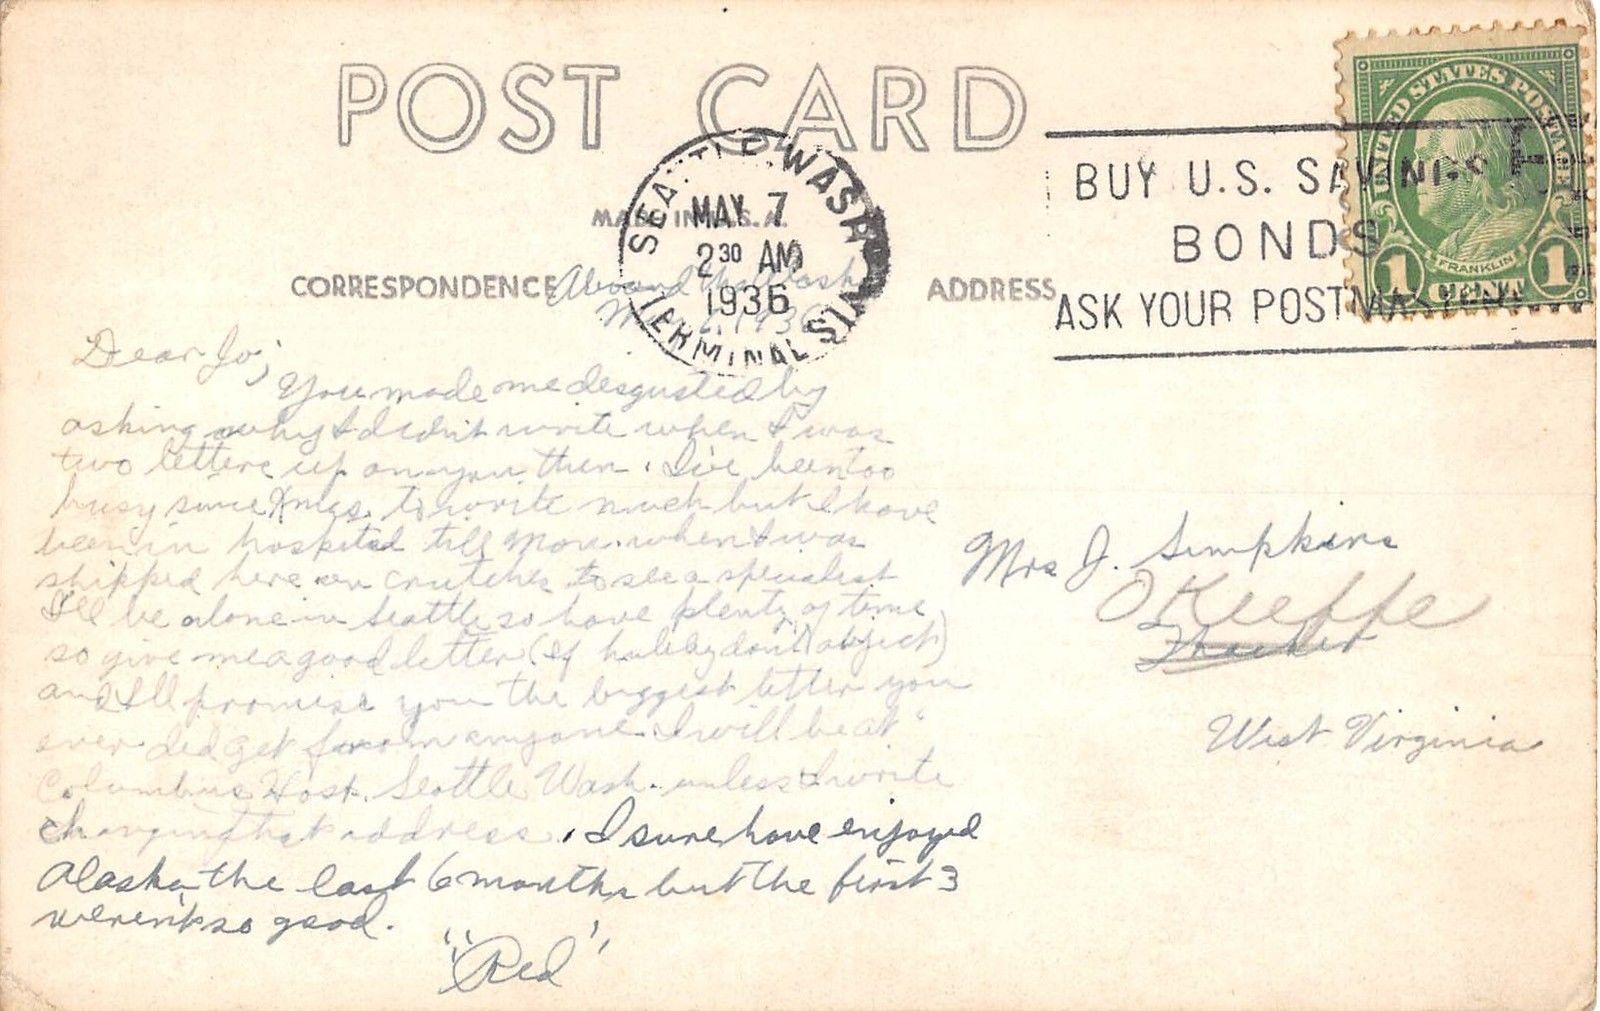 POST CARD
MADE IN U.S.A.
CORRESPONDENCE
ADDRESS
SEATTLE, WASH.
TERMINAL
MAY 7
2 30 AM
1936
BUY U.S. SAVINGS
BONDS
ASK YOUR POSTMASTER
UNITED STATES POSTAGE
FRANKLIN
1 CENT 1
Aboard
May 6, 1936
Dear Jo;
You made me disgusted by
asking why I didn't write when I was
two letters up on you then. I've been too
busy since Xmas to write much but I have
been in hospital till Mon. when I was
shipped here on crutches to see a specialist
I'll be alone in Seattle so have plenty of time
so give me a good letter (if hubby don't object)
and I'll promise you the biggest letter you
ever did get from anyone. I will be at
Columbus Hosp. Seattle Wash. unless I write
changing that address. I sure have enjoyed
Alaska the last 6 months but the first 3
weren't so good.
"Red"
Mrs J. Simpkins
O'Keeffe
Thacker
West Virginia